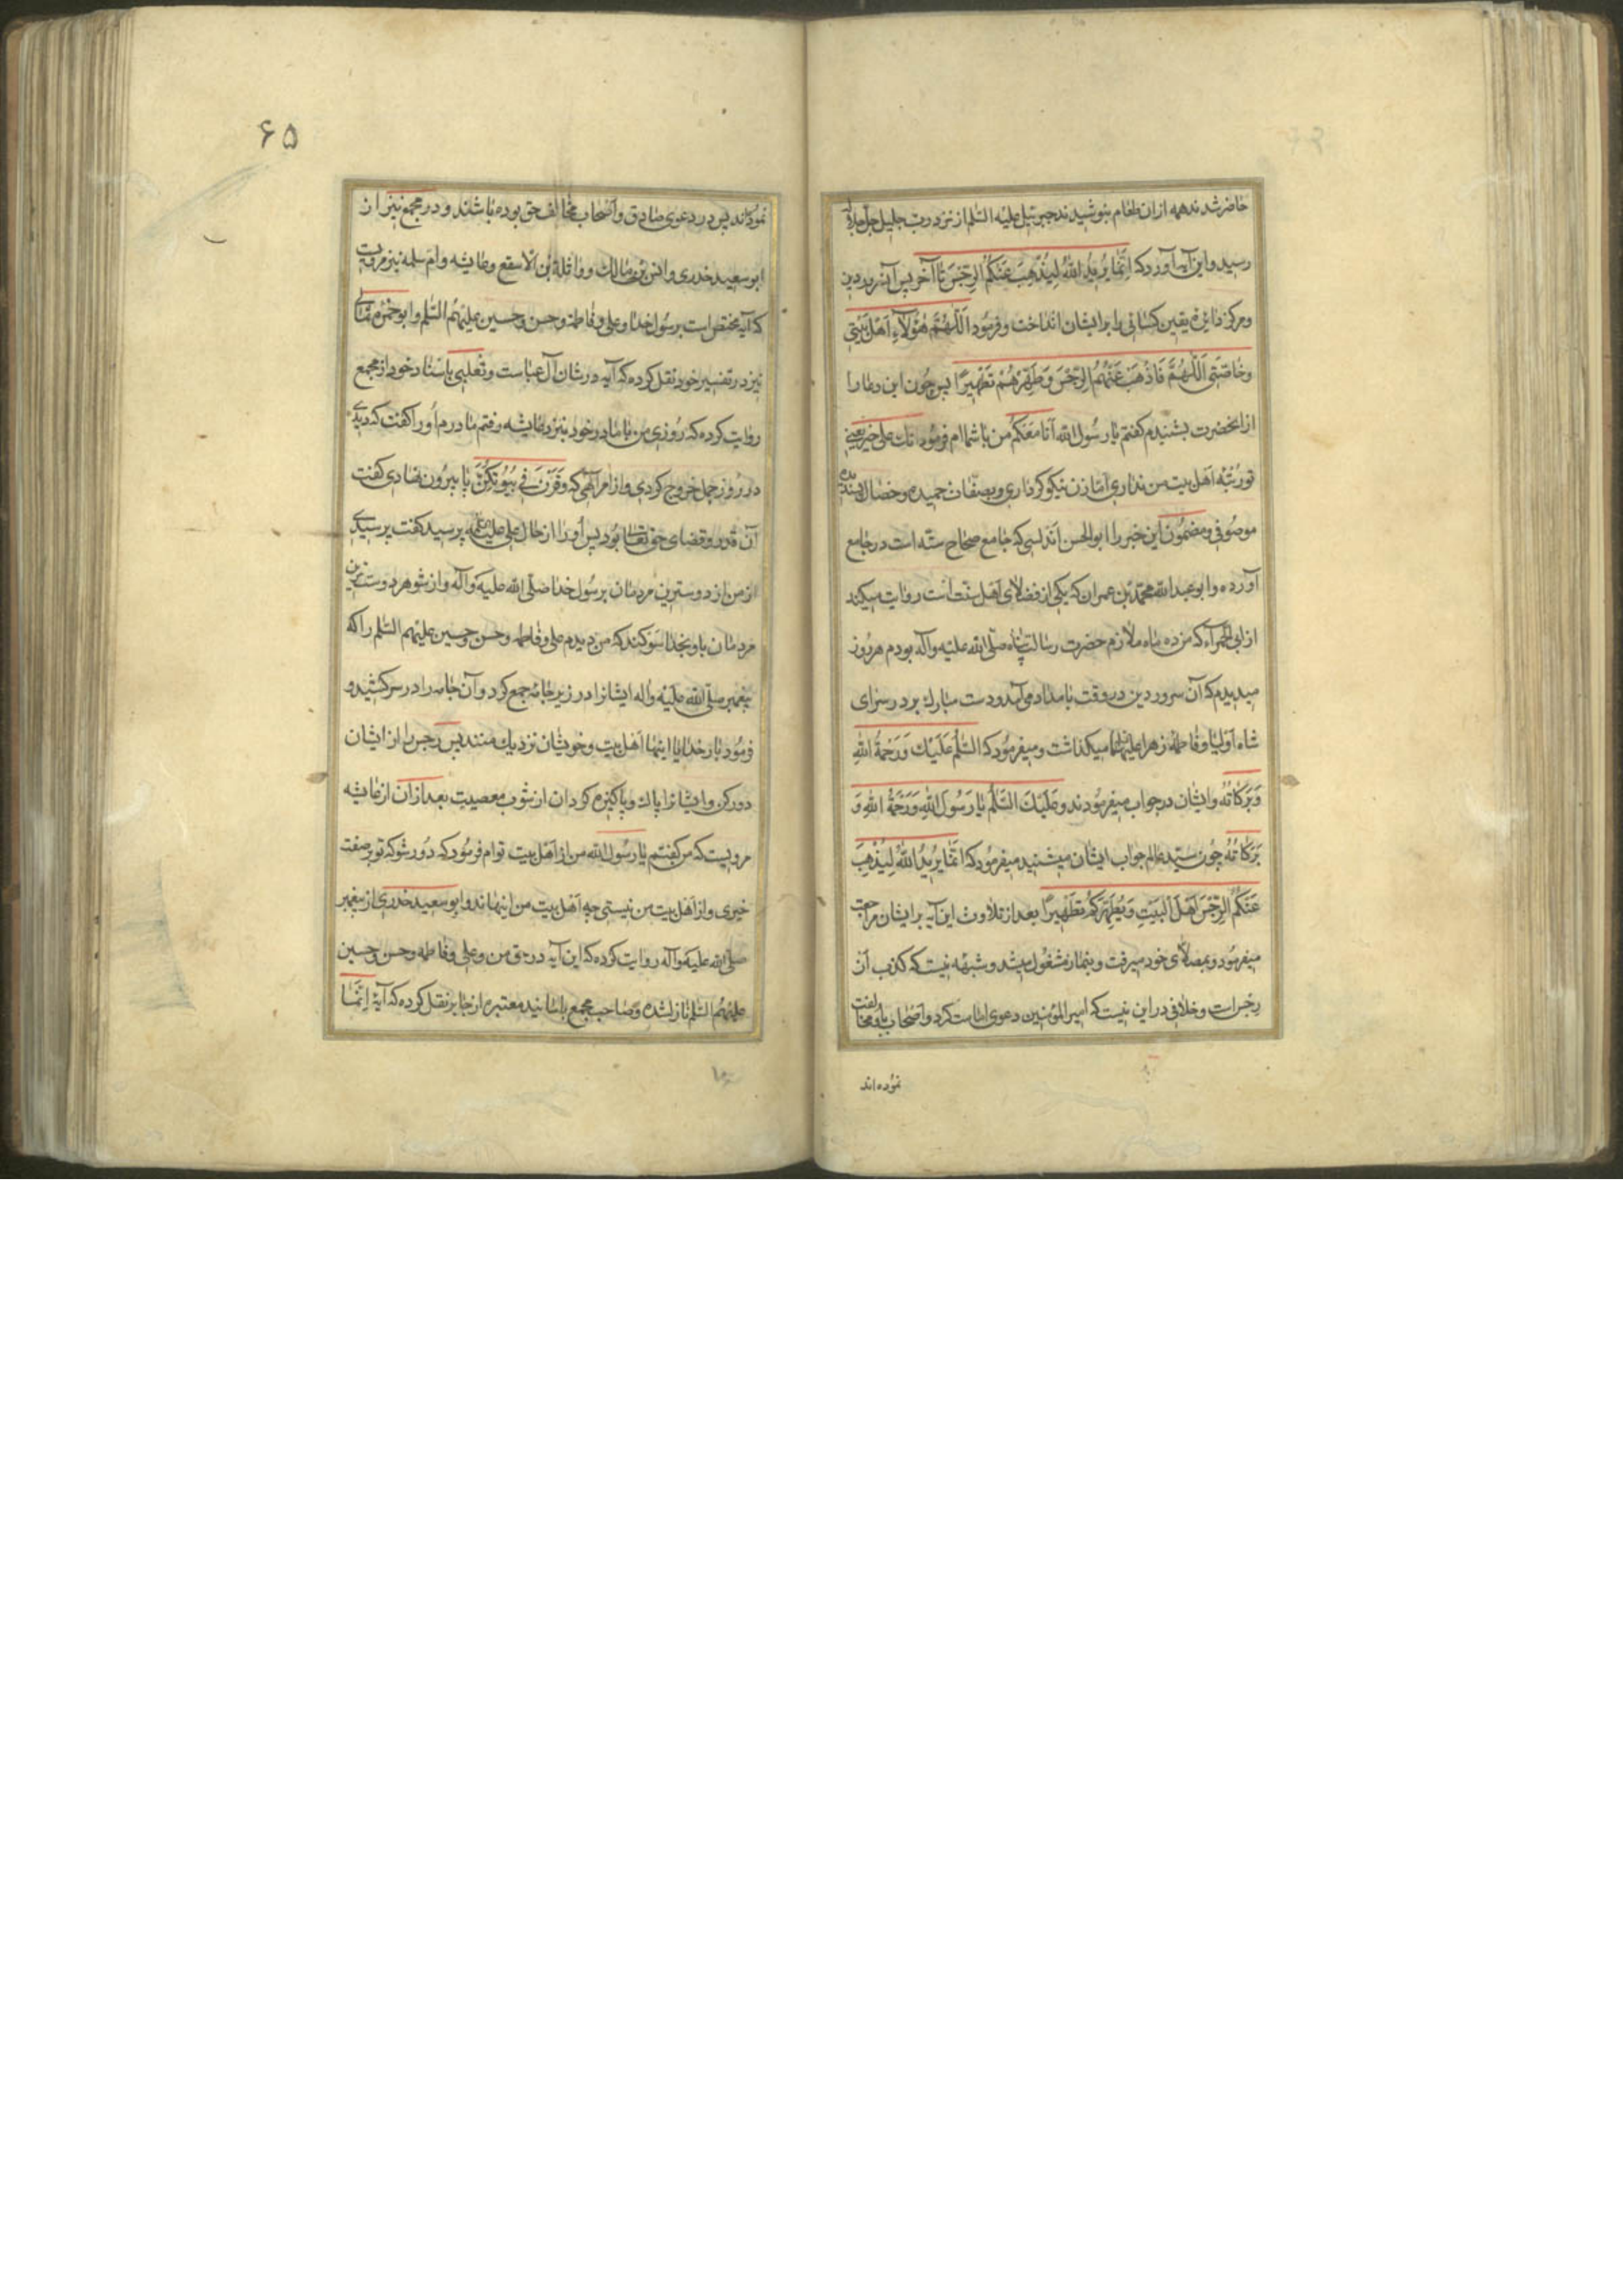 حاضر شدند همه ازان طعام بنوشیدند جبرئیل علیه السلم از نزد رب جلیل جل جلاله
رسید و این آیه آورد که اِنَّما یُریدُ اللّهُ لِیُذْهِبَ عَنْکُمُ الرِّجْسَ تا آخر پس آن سرور دین
و مرکز دایرهٔ یقین کسائی را بر ایشان انداخت و فرمود اَللّهُمَّ هٰؤُلآءِ اَهْلُ بَیْتی
وخاصَّتی اَللّهُمَّ فَاَذْهِبْ عَنْهُمُ الرِّجْسَ وَطَهِّرْهُمْ تَطْهیرًا پس چون این دعا را
از انحضرت بشنیدم کفتم یا رسول الله اَنَا مَعَکُمْ من با شماام فرمود انك علی خیر یعنی
تو رتبه اهل بیت من نداری امّا زن نیکو کرداری و بصفات حمیده و خصال پسندیده
موصوفی و مضمون این خبر را ابو الحسن اندلسی که جامع صحاح ستّه است در جامع
آورده و ابو عبد الله محمّد بن عمران که یکی از فضلای اهل سنّت است روایت میکند
از ابی الحمرآء که من ده ماه ملازم حضرت رسالت پناه صلّی الله علیه وآله بودم هر روز
میدیدم که آن سرور دین در وقت بامداد می‌آمد و دست مبارك بر در سرای
شاه اولیا و فاطمه زهرا علیهما میکذاشت و میفرمود که السَّلٰمُ عَلَیْكَ وَرَحْمَةُ اللهِ
وَبَرَکاتُهُ وایشان در جواب میفرمودند وعَلَیْكَ السَّلٰمُ یا رَسُولَ اللهِ وَرَحْمَةُ اللهِ وَ
بَرَکاتُهُ چون سیّد عالم جواب ایشان میشنید میفرمود که اِنَّما یُریدُ اللهُ لِیُذْهِبَ
عَنْکُمُ الرِّجْسَ اَهْلَ الْبَیْتِ وَیُطَهِّرَکُمْ تَطْهیرًا بعد از تلاوت این آیه بر ایشان مراجعت
میفرمود و بمصلّای خود میرفت و بنماز مشغول میشد و شبهه نیست که کذب آن
رجس است و خلافی در این نیست که امیر المؤمنین دعوی امامت کرد و اصحاب با او مخالفت
نموده‌اند
۶۵
نموده‌اند پس در دعوی صادق و اصحاب مخالف حق بوده باشند و در مجمع نیز از
ابو سعید خدری و انس بن مالك و واثلة بن الاسقع و عایشه و امّ سلمه نیز مرویست
که آیه مختص است برسول خدا و علی و فاطمه و حسن و حسین علیهم السّلم و ابو حمزه ثمالی
نیز در تفسیر خود نقل کرده که آیه در شان آل عباست و ثعلبی باسناد خود از مجمع
روایت کرده که روزی من با مادر خود بنزد عایشه رفتم مادرم او را کفت که دیدی
در روز جمل خروج کردی و از امر آلهی که وَقَرْنَ فی بُیُوتِکُنَّ پا بیرون نهادی کفت
آن قدر و قضای حق تعالی بود پس او را از حال علی علیه السلم پرسید کفت پرسیدی
از من از دوستترین مردمان برسول خدا صلّی الله علیه وآله و از شوهر دوسترین
مردمان باو بخدا سوکند که من دیدم علی و فاطمه و حسن و حسین علیهم السّلم را که
پیغمبر صلّی الله علیه وآله ایشانرا در زیر جامه جمع کرد و آن جامه را در سر کشید و
فرمود بار خدایا اینها اهل بیت و خویشان نزدیك منند پس رجس را از ایشان
دور کن و ایشانرا پاك و پاکیزه کردان از شوب معصیت بعد ازان از عایشه
مرویست که من کفتم یا رسول الله من از اهل بیت توام فرمود که دور شو که تو بر صفت
خیری و از اهل بیت من نیستی چه اهل بیت من اینهااند و ابو سعید خدری از پیغمبر
صلی الله علیه وآله روایت کرده که این آیه در حق من و علی و فاطمه و حسن و حسین
علیهم السّلم نازلشده و صاحب مجمع باسانید معتبره از جابر نقل کرده که آیهٔ اِنَّما